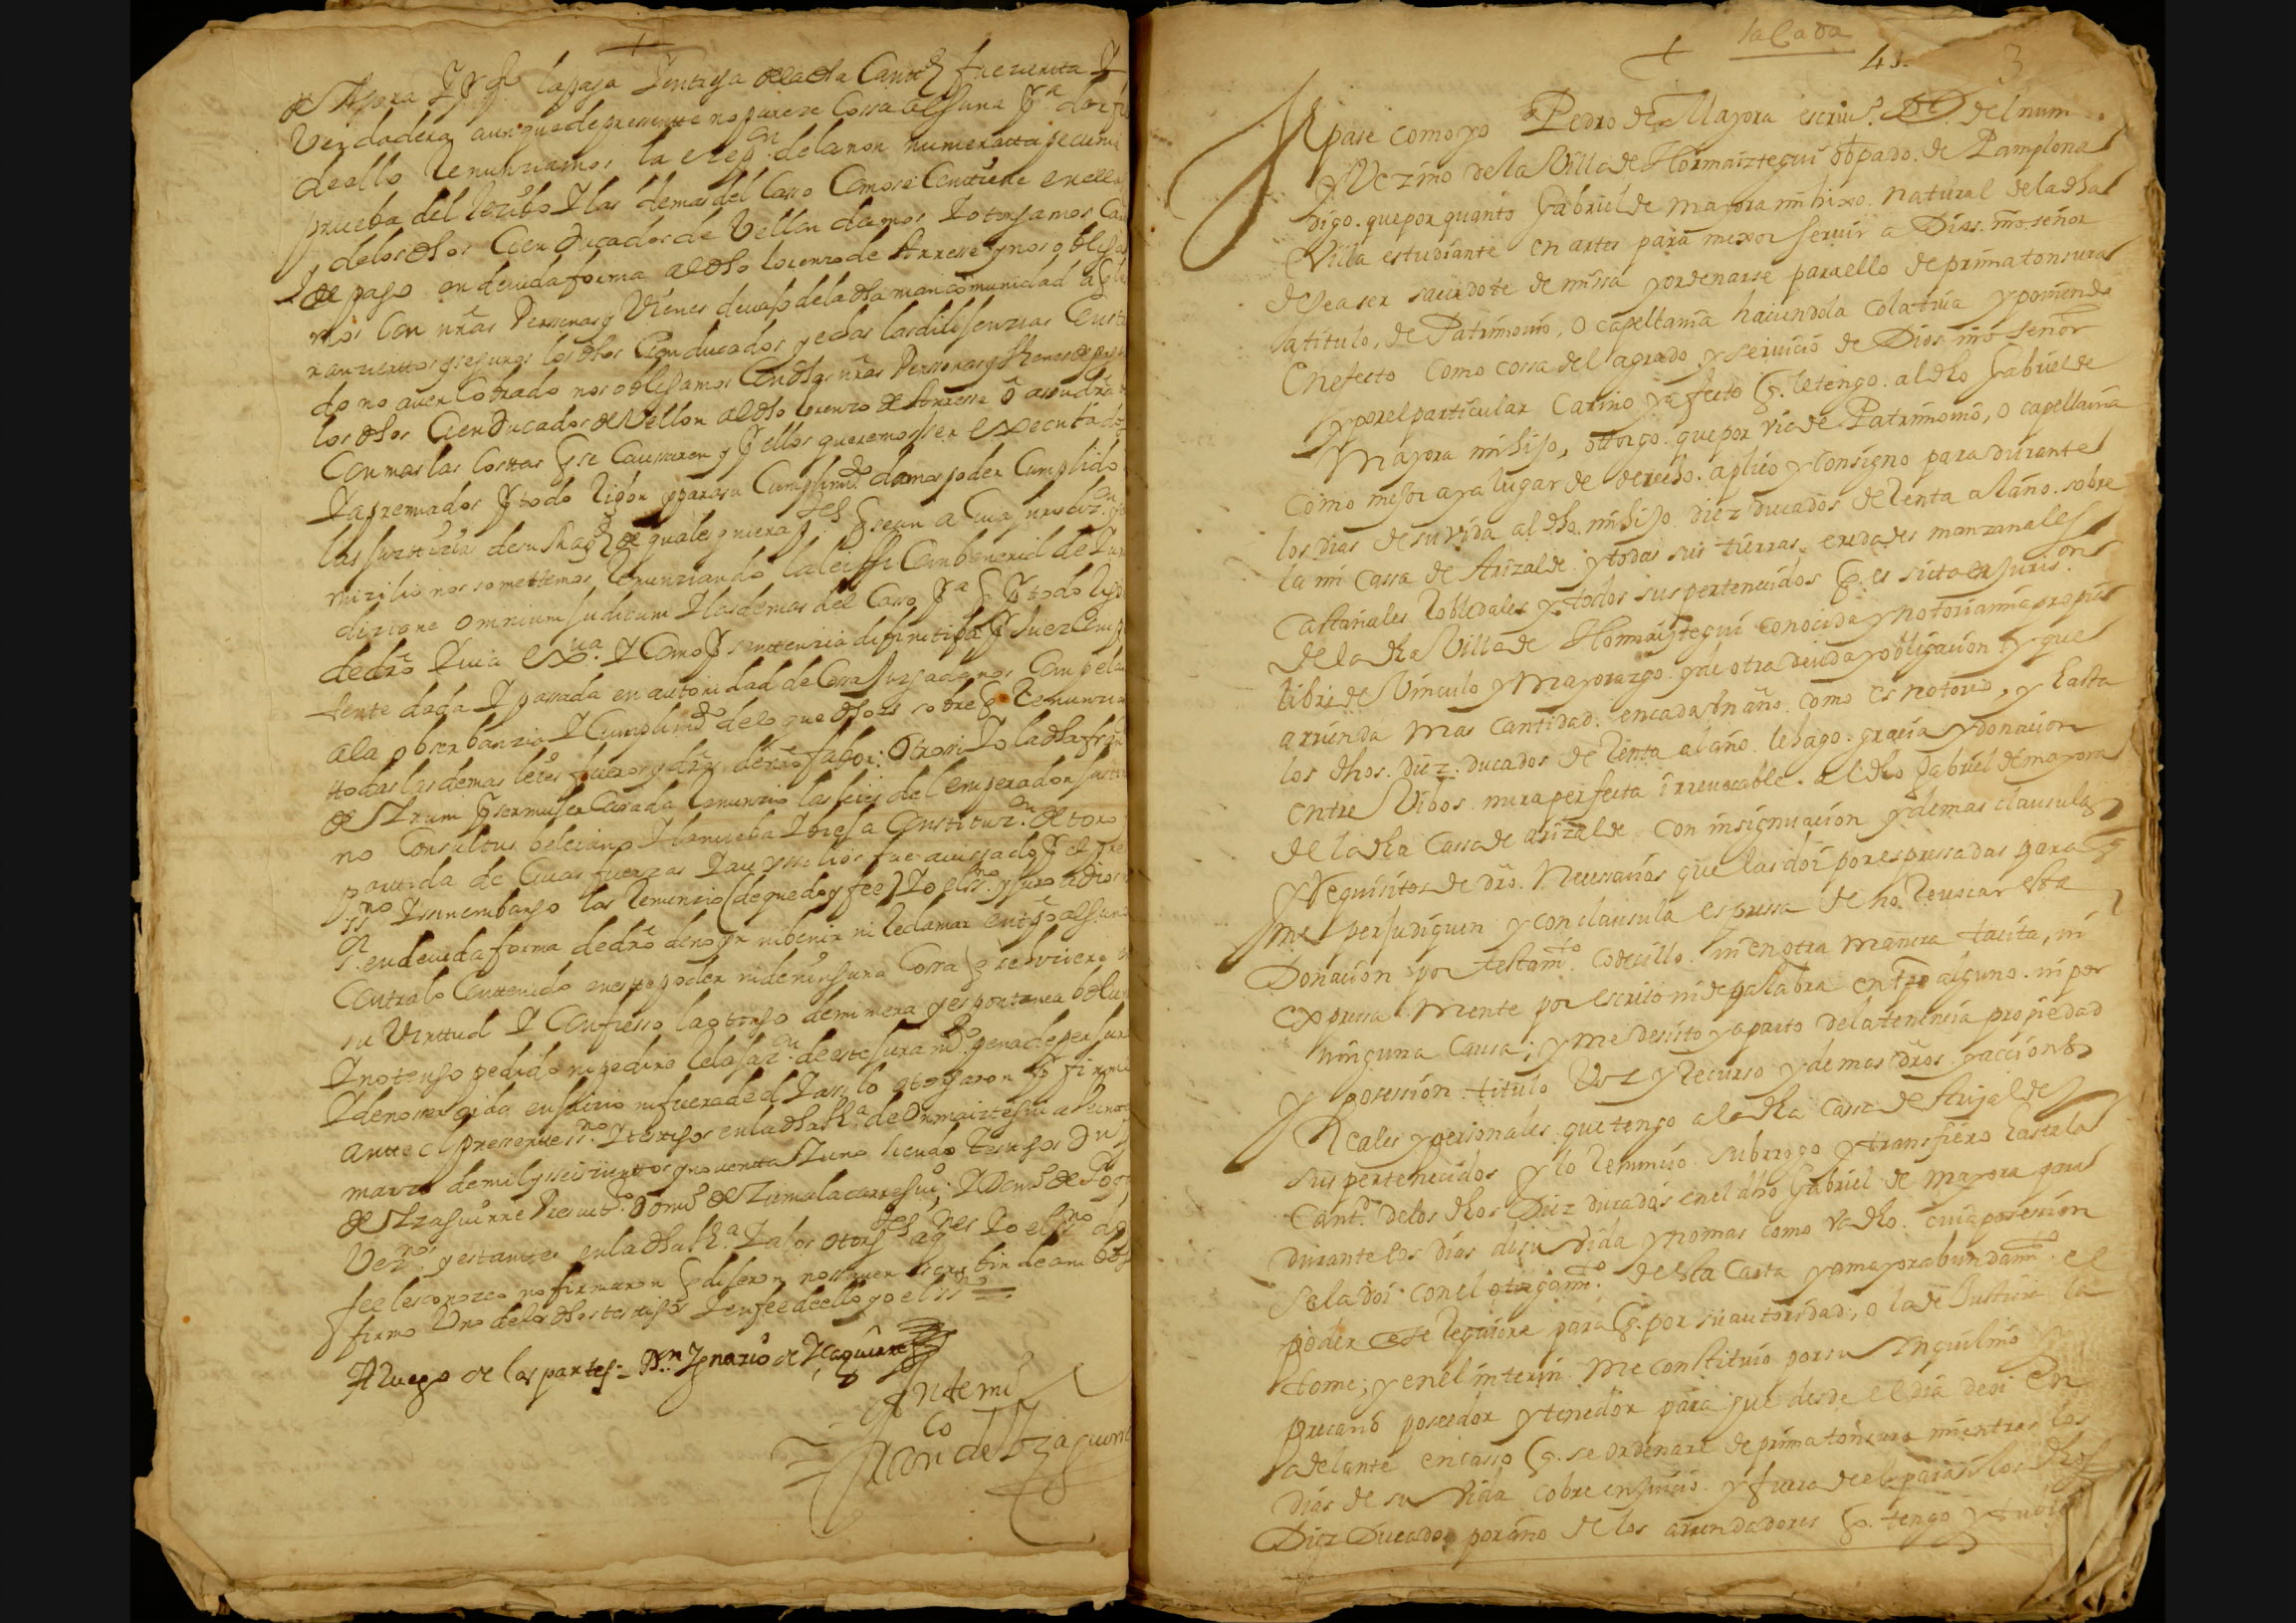 de Aspra Y por q. la paga Y entrega de la dha Cantd fue cierta Y
Verdadera aunque de presente no pareze Cossa alguna
de ello Renunziamos la exepn de la non numeratta pecunia
prueba del Rezibo Y las demas del Casso Como se Contiene en ellas
Y de los dhos Cien Ducados de Vellon damos Y otorgamos Carta
de pago en devida forma al dho Lorenzo de Arresse y nos obligamos
mos Con nras Personas y Vienes devajo de la dha mancomunidad
ran ziertos y seguros los dhos Cien ducados y echas las dilijenzias
do no aver Cobrado nos obligamos Con dhas nras Personas y Vienes de pagar
los dhos Cien Ducados de Vellon al dho Lorenzo de Arresse
Con mas las Costtas q se Causaren y por ellos queremos ser executados
Y apremiados por todo Rigor y para su Cumplimto damos poder Cumplido
las Justizias de su Magd de quales quiera ptes q sean a Cuia jurisdizn
mizilio nos somettemos Renunziando la lei si Combenerid de Juris
dizione omnium Judicum Y las demas del Casso pa q por todo Rigor
de dro Y via exva Y Como por senttenzia difinitiba por Juez Competente
tente dada Y pasada en autoridad de Cossa Juzgada nos Compelan
a la obserbanzia Y Cumplimto de lo que dho es sobre q Renunziamos
ttodas las demas leies fueros y dros de nro fabor: Otrosi Yo la dha
por ser muger Cassada Renunzio las leies del emperador Justiniano
no Consultus beleiano Y la nueba Y bieja Constituzn de toro
partida de Cuias fuerzas Y auxsilios fue avissada por el pre
sno Y sin embargo las Renunzio (de que doy fee) Yo el sno y juro a dios
en devida forma de dro de no yr ni benir ni Reclamar en tpo alguno
Contra lo Conttenido en este poder ni de ninguna Cossa q se hiziere
su Virttud Y Confiesso la otorgo de mi mera y espontanea bolun
Y no tengo pedido ni pedire Relajazn de este juramto pena de perjura
Y de no ser oida en juizio ni fuera de el Y assi lo otorgaron
antte el presente sno Y testigos en la dha Va de Ormaiztegui a Veinte
marzo de mil y seiscienttos y noventta Y uno siendo testigos Dn
de Yzaguirre Presuito Domo de Zumalacarregui, Y
Veznos y estantes en la dha Va Y a los otorgtes a qnes Yo el sno doy
fee les conozco no firmaron q dijeron no saver escrivir
firmo Uno de los dhos testigos Y en fee de ello yo el sno =
A Ruego de las partes = Dn Ygnazio de Yzaguirre
Ante mi
Franco de Yzaguirre
sacada
43. 3
Sepase como yo Pedro de Mayora escriuo del num
y Vezino de la Villa de Hormaiztegui obpado de Pamplona
Digo que por quanto Gabriel de Mayora mi hixo natural de la dha
Villa estudiante en artes para mexor seruir a Dios nro señor
desea ser sacerdote de missa y ordenarse para ello de prima tonsura
a titulo de Patrimonio, o capellania haciendola colatiua y poniendo
en efecto Como cossa del agrado y seruicio de Dios nro señor
y por el particular Cariño y afecto q. le tengo al dho Gabriel de
Mayora mi hijo, otorgo que por via de Patrimonio, o capellania
como mejor aya lugar de derecho aplico y consigno para durante
los dias de su vida al dho mi hijo diez ducados de Renta al año sobre
la mi cassa de Arizalde y todas sus tierras eredades manzanales
castañales Robledales y todos sus pertenecidos q. es sita en Jurision
de la dha Villa de Hormaiztegui conocida y notoria mia propia
libre de Vinculo y Mayorazgo y de otra deuda y obligacion y que
arrienda mas cantidad en cada Vn año como es notorio, y hasta
los dhos diez ducados de Renta al año le hago gracia y donacion
entre Vibos mera perfecta irreuocable al dho Gabriel de mayora
de la dha Cassa de arizalde con insignuacion y demas clausulas
y Requisitos de dro Necessarios que las doi por espressadas para q
me perjudiquen y con clausula espressa de no Reuocar esta
Donacion por testamto codecillo ni en otra manera tacita, ni
expressa mente por escrito ni de palabra en tpo alguno ni por
ninguna Causa; y me desisto y aparto de la tenencia propiedad
y posession titulo Uoz y Recurso y demas dros y acciones
Reales y personales que tengo a la dha cassa de Arizalde
sus pertenecidos y lo Renuncio subrrogo y transfiero hasta la
Cantd de los dhos Diez ducados en el dho Gabriel de mayora para
durante los dias de su Vida y no mas como va dho cuia posesion
se la doi con el otorgamto desta Carta y a mayor abundamto el
poder q se Requiere para q. por su autoridad, o la de Justicia la
tome; y en el interin me constituio por su Inquilino
precario posseedor y tenedor para que desde el dia de oi en
adelante en casso q. se ordenare de prima tonsura mientras los
dias de su Vida cobre en juicio y fuera de el para si los dhos
Diez Ducados por año de los arrendadores q. tengo y tubie